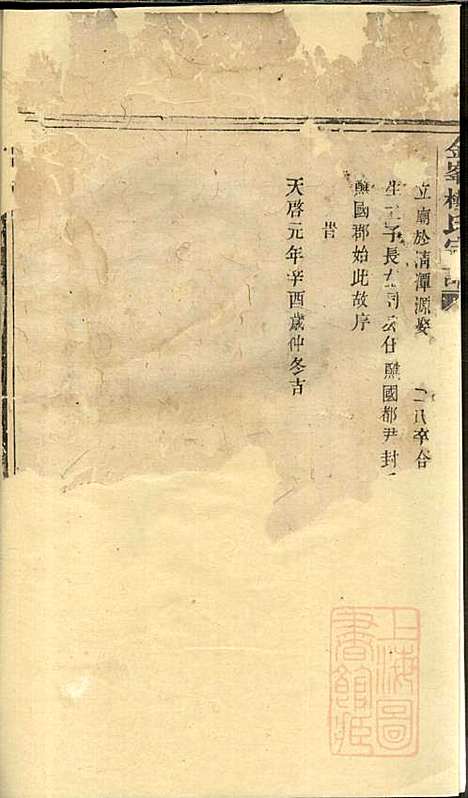 金峯楊氏宗譜
立廟於清潭源娶
卒合
生三子長
仕譙國都尹封
譙國郡始此故序
旹
天啓元年辛酉歲仲冬吉
上海圖
書館藏